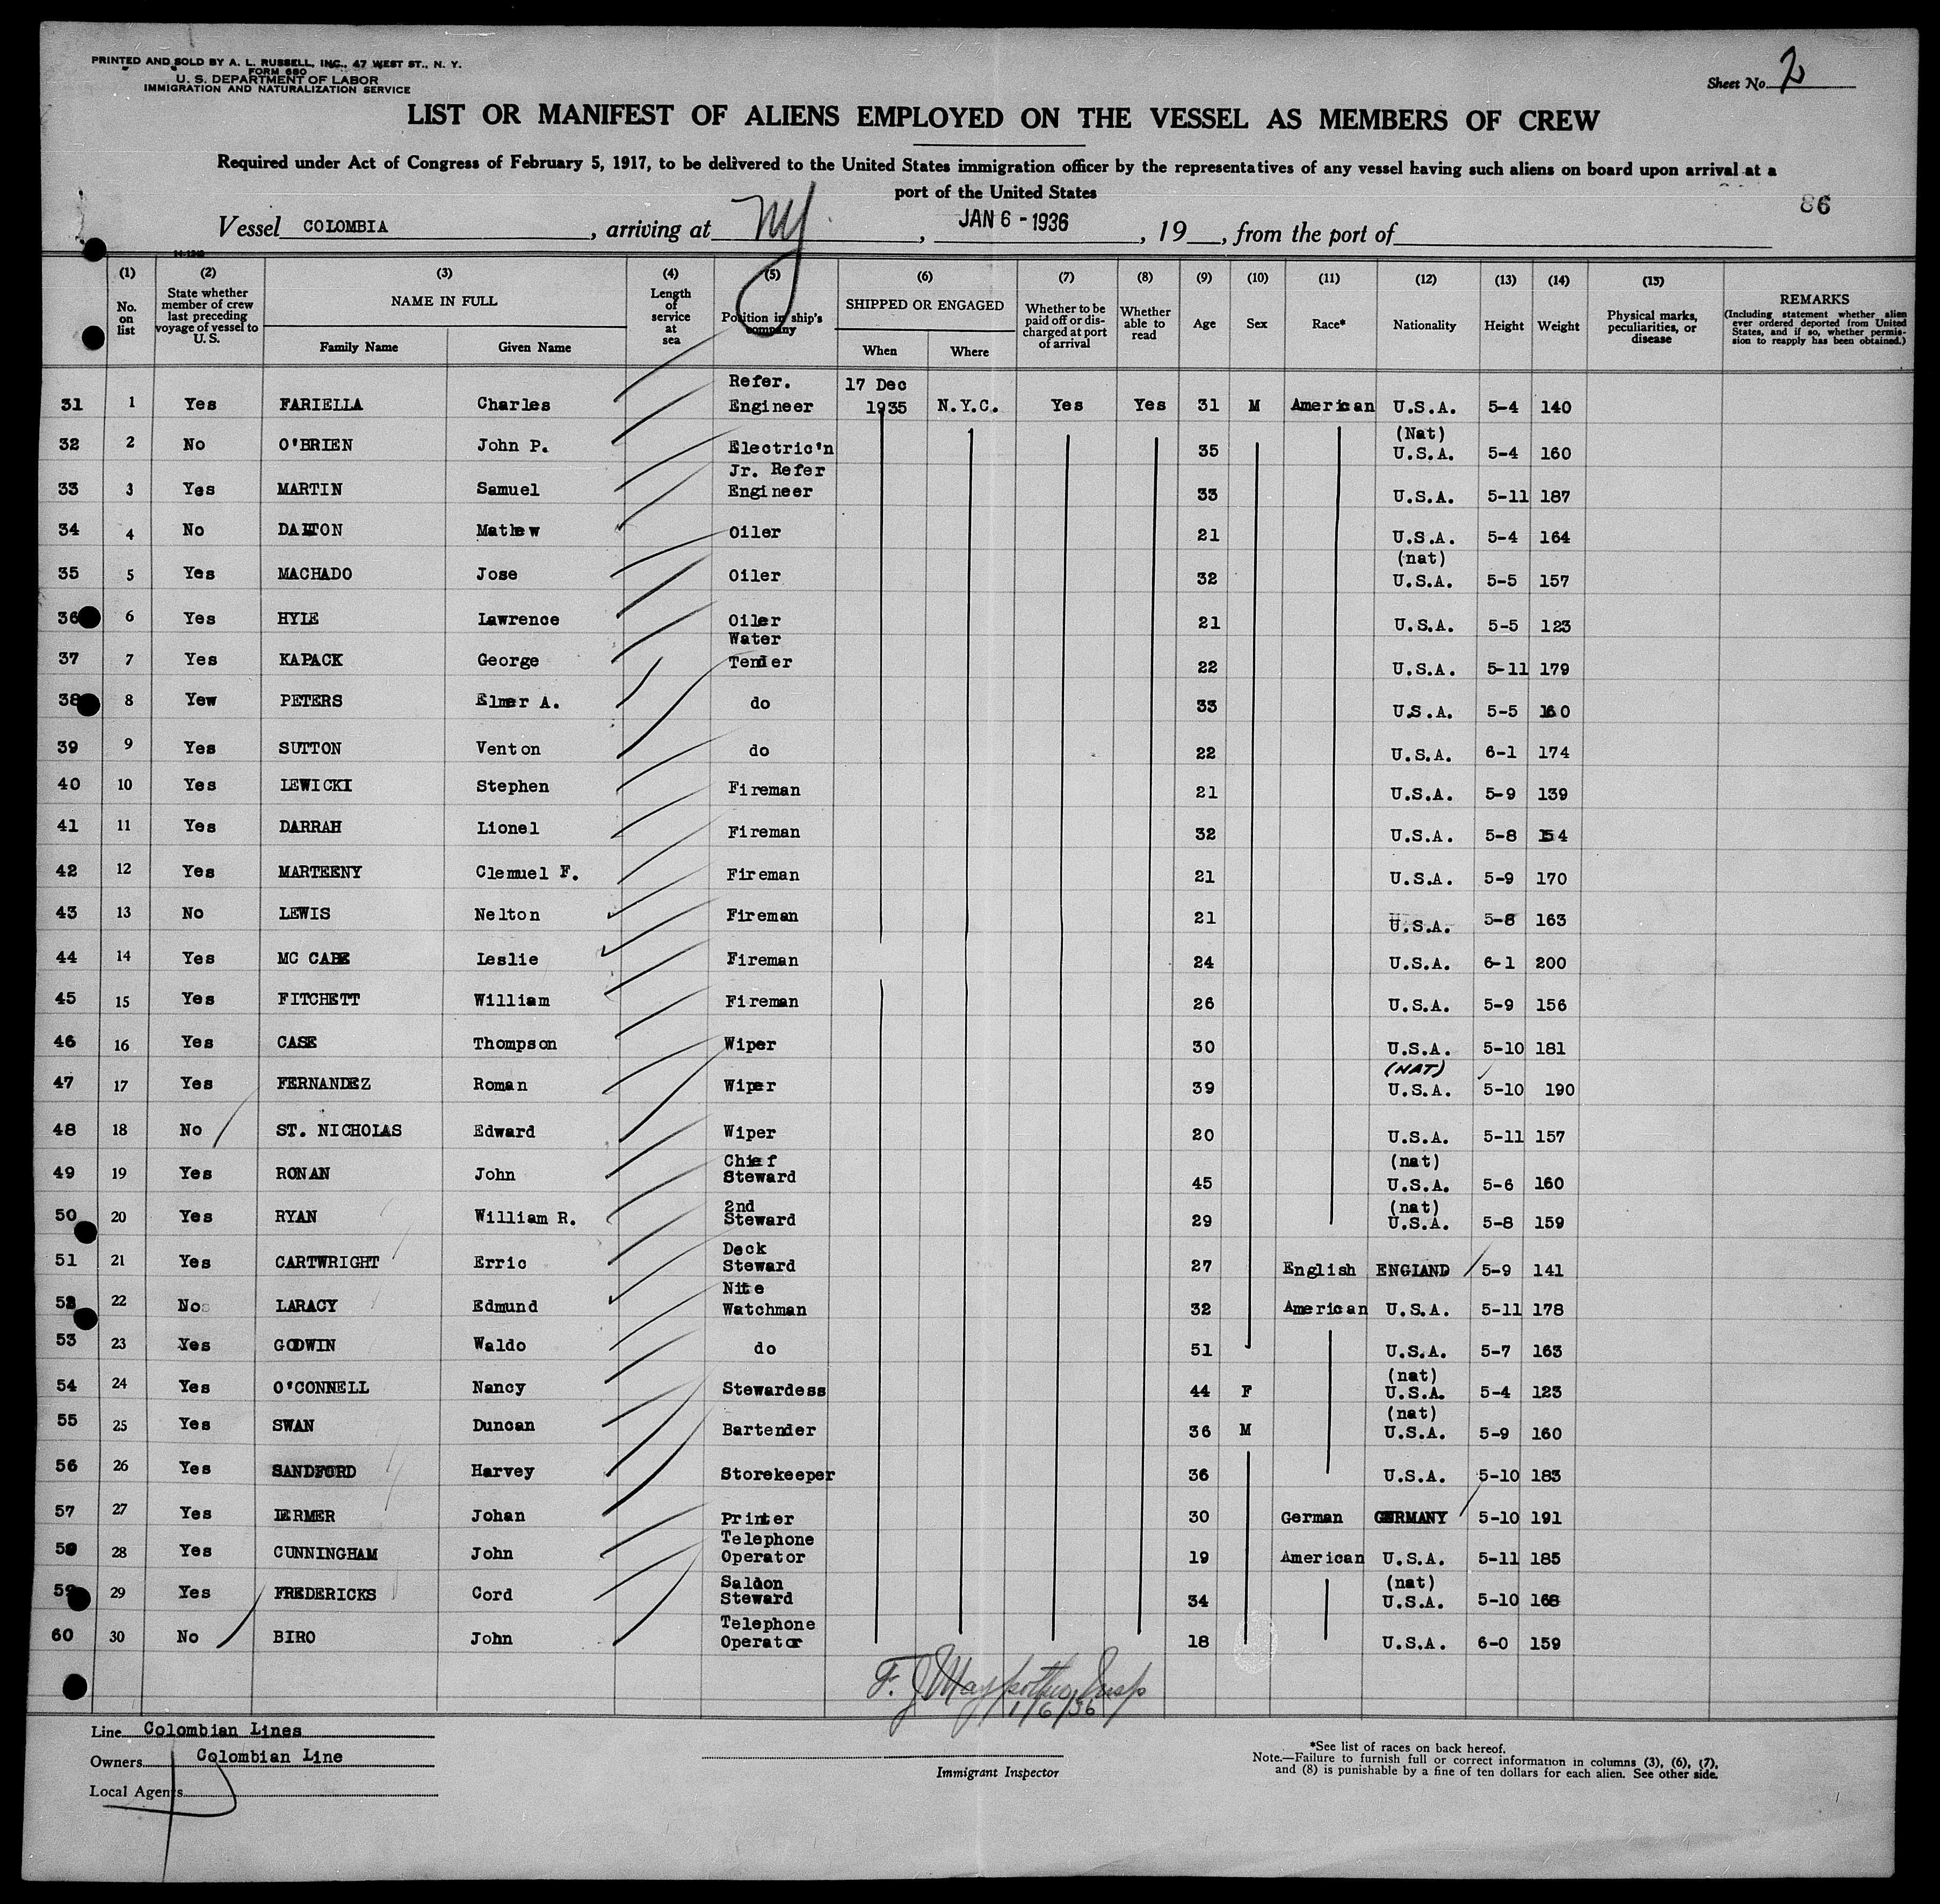 PRINTED AND SOLD BY A. L. RUSSELL, INC., 47 WEST ST., N. Y.
FORM 680
U. S. DEPARTMENT OF LABOR
IMMIGRATION AND NATURALIZATION SERVICE
Sheet No. 2
LIST OR MANIFEST OF ALIENS EMPLOYED ON THE VESSEL AS MEMBERS OF CREW
Required under Act of Congress of February 5, 1917, to be delivered to the United States immigration officer by the representatives of any vessel having such aliens on board upon arrival at a
port of the United States
86
Vessel COLOMBIA, arriving at NY, JAN 6 - 1936, 19__, from the port of
14-1240
(1) No. on list
(2) State whether member of crew last preceding voyage of vessel to U. S.
(3) NAME IN FULL Family Name Given Name
(4) Length of service at sea
(5) Position in ship's company
(6) SHIPPED OR ENGAGED When Where
(7) Whether to be paid off or discharged at port of arrival
(8) Whether able to read
(9) Age
(10) Sex
(11) Race*
(12) Nationality
(13) Height
(14) Weight
(15) Physical marks, peculiarities, or disease
REMARKS (Including statement whether alien ever ordered deported from United States, and if so, whether permission to reapply has been obtained.)
31 1 Yes FARIELLA Charles Refer. Engineer 17 Dec 1935 N.Y.C. Yes Yes 31 M American U.S.A. 5-4 140
32 2 No O'BRIEN John P. Electric'n 35 (Nat) U.S.A. 5-4 160
33 3 Yes MARTIN Samuel Jr. Refer Engineer 33 U.S.A. 5-11 187
34 4 No DALTON Mathew Oiler 21 U.S.A. 5-4 164
35 5 Yes MACHADO Jose Oiler 32 (nat) U.S.A. 5-5 157
36 6 Yes HYLE Lawrence Oiler 21 U.S.A. 5-5 123
37 7 Yes KAPACK George Water Tender 22 U.S.A. 5-11 179
38 8 Yew PETERS Elmer A. do 33 U.S.A. 5-5 160
39 9 Yes SUTTON Venton do 22 U.S.A. 6-1 174
40 10 Yes LEWICKI Stephen Fireman 21 U.S.A. 5-9 139
41 11 Yes DARRAH Lionel Fireman 32 U.S.A. 5-8 154
42 12 Yes MARTEENY Clemuel F. Fireman 21 U.S.A. 5-9 170
43 13 No LEWIS Nelton Fireman 21 U.S.A. 5-8 163
44 14 Yes MC CABE Leslie Fireman 24 U.S.A. 6-1 200
45 15 Yes FITCHETT William Fireman 26 U.S.A. 5-9 156
46 16 Yes CASE Thompson Wiper 30 U.S.A. 5-10 181
47 17 Yes FERNANDEZ Roman Wiper 39 (NAT) U.S.A. 5-10 190
48 18 No ST. NICHOLAS Edward Wiper 20 U.S.A. 5-11 157
49 19 Yes RONAN John Chief Steward 45 (nat) U.S.A. 5-6 160
50 20 Yes RYAN William R. 2nd Steward 29 (nat) U.S.A. 5-8 159
51 21 Yes CARTWRIGHT Erric Deck Steward 27 English ENGLAND 5-9 141
52 22 No LARACY Edmund Nite Watchman 32 American U.S.A. 5-11 178
53 23 Yes GODWIN Waldo do 51 U.S.A. 5-7 163
54 24 Yes O'CONNELL Nancy Stewardess 44 F (nat) U.S.A. 5-4 123
55 25 Yes SWAN Duncan Bartender 36 M (nat) U.S.A. 5-9 160
56 26 Yes SANDFORD Harvey Storekeeper 36 U.S.A. 5-10 183
57 27 Yes Johan Printer 30 German GERMANY 5-10 191
58 28 Yes CUNNINGHAM John Telephone Operator 19 American U.S.A. 5-11 185
59 29 Yes FREDERICKS Cord Saloon Steward 34 (nat) U.S.A. 5-10 168
60 30 No BIRO John Telephone Operator 18 U.S.A. 6-0 159
F. J. Insp
1/6/36
Line Colombian Lines
Owners Colombian Line
Local Agents
Immigrant Inspector
*See list of races on back hereof.
Note.—Failure to furnish full or correct information in columns (3), (6), (7),
and (8) is punishable by a fine of ten dollars for each alien. See other side.